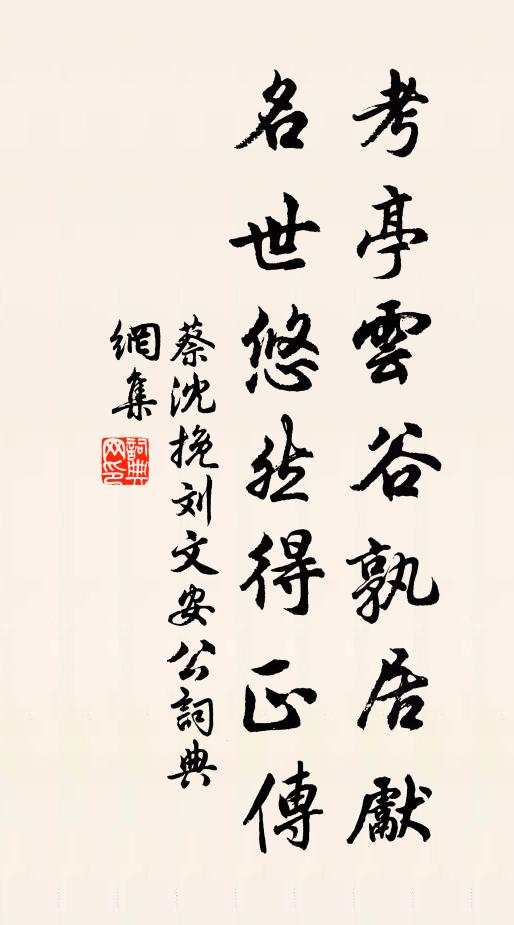 考亭雲谷孰居獻
名世悠然得正傳
蔡沈挽刘文安公詞典
網集
詞典網印